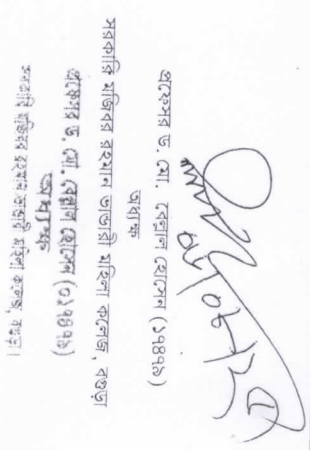 প্রফেসর ড. মো. বেল্লাল হোসেন (১৭৪৭৯)
অধ্যক্ষ
সরকারি মজিবর রহমান ভান্ডারী মহিলা কলেজ, বগুড়া
প্রফেসর ড. মো. বেল্লাল হোসেন (০১৭৪৭৯)
অধ্যক্ষ
সরকারি মজিবর রহমান ভান্ডারী মহিলা কলেজ, বগুড়া।